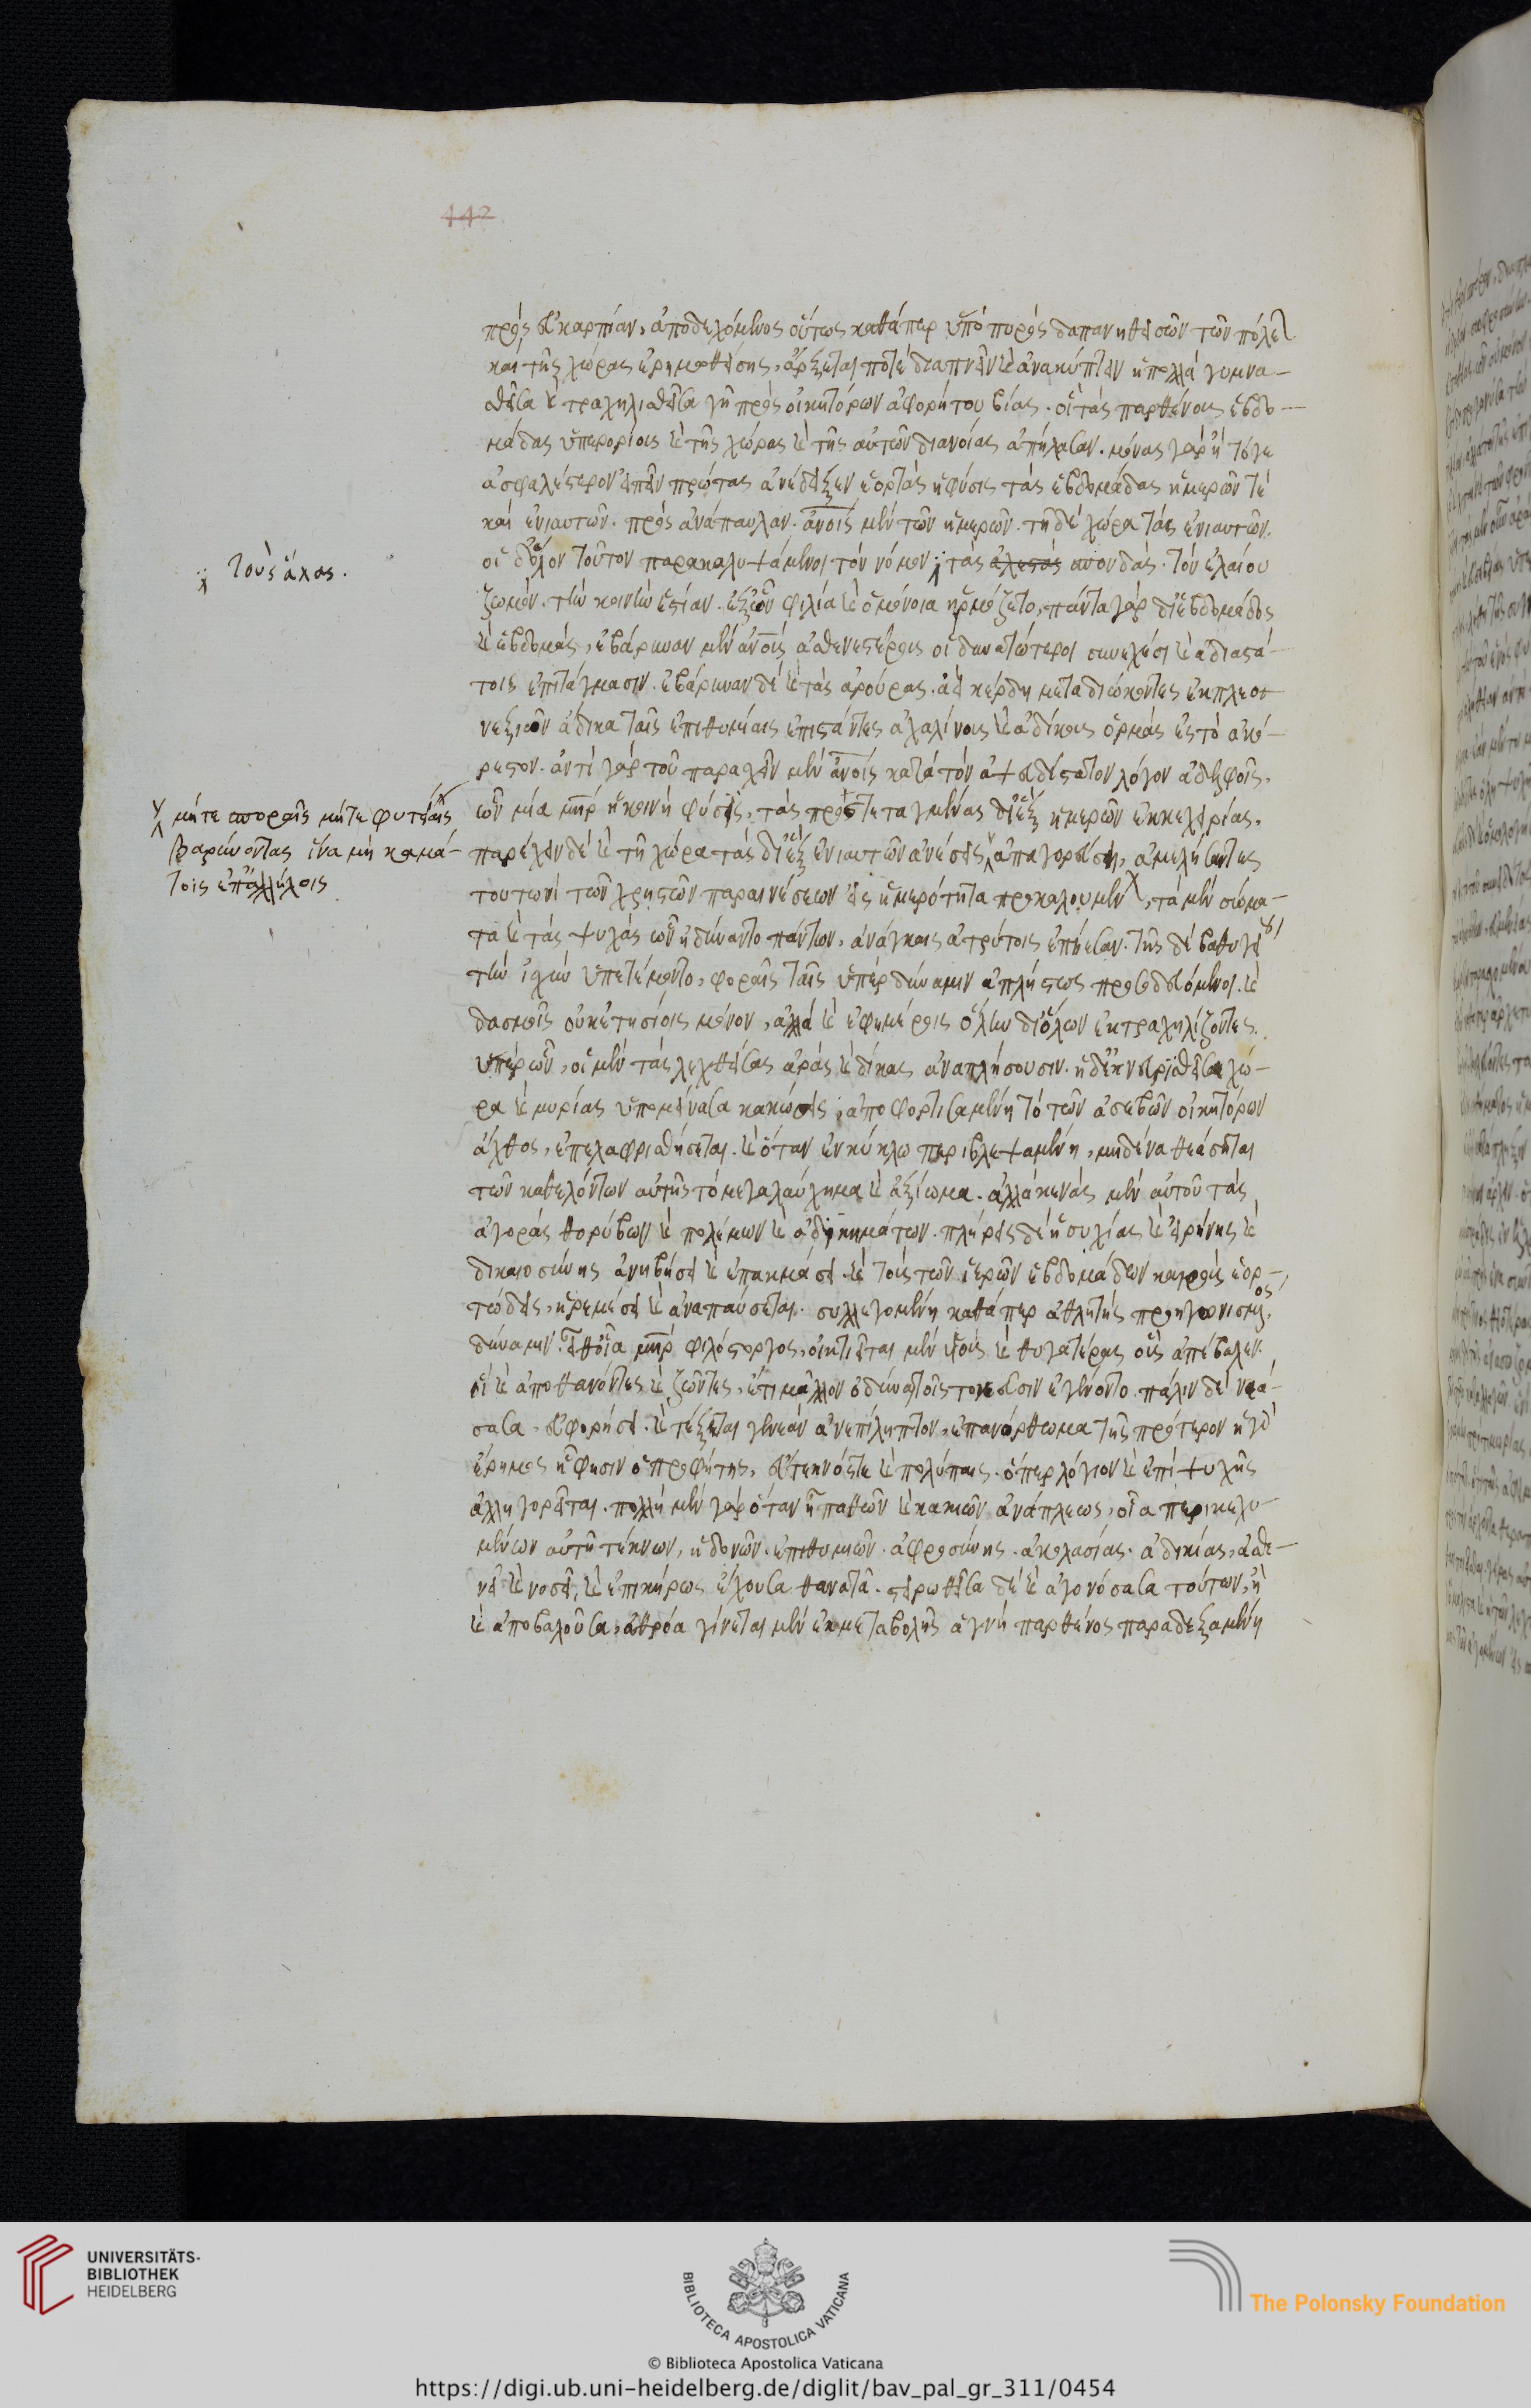 442
πρὸς εὐκαρπίαν, ἀποδεχόμενος οὕτως καθάπερ ὑπὸ πυρὸς δαπανηθεισῶν τῶν πόλε
καὶ τῆς χώρας ἐρημωθείσης, ἄρξεταί ποτε διαπνεῖν καὶ ἀνακύπτειν ἡ πολλὰ γυμνα-
σθεῖσα καὶ τραχηλισθεῖσα γῆ πρὸς οἰκητόρων ἀφορήτου βίας. οἳ τὰς παρθένους ἑβδο-
μάδας ὑπερορίους καὶ τῆς χώρας καὶ τῆς αὐτῶν διανοίας ἀπήλασαν. μόνας γὰρ ἢ τόγε
ἀσφαλέστερον εἰπεῖν πρώτας ἀνέδειξεν ἑορτὰς ἡ φύσις τὰς ἑβδομάδας ἡμερῶν τὲ
καὶ ἐνιαυτῶν. πρὸς ἀνάπαυλαν. ἀνοις μὲν τῶν ἡμερῶν. τῇ δὲ χώρα τὰς ἐνιαυτῶν.
οἱ δὲ ὅλον τοῦτον παρακαλυψάμενοι τὸν νόμον τὰς ἀλεστὰς σπονδὰς. τὸν ἐλαίου
τοὺς ἅλας.
ζωμόν. τὴν κοινὴν ἑστίαν. ἐξ ὧν φιλία καὶ ὁμόνοια ἡρμόζετο, πάντα γὰρ δι' ἑβδομάδος
καὶ ἑβδομὰς, ἐβάρυναν μὲν ἀνοις ἀσθενεστέρους οἱ δυνατώτεροι συνεχέσι καὶ ἀδιαστά-
τοις ἐπιτάγμασιν. ἐβάρυναν δὲ καὶ τὰς ἀρούρας. ἀεὶ κέρδη μεταδιώκοντες ἐκ πλεον
νεξιῶν ἄδικα ταῖς ἐπιθυμίαις ἐπιστάντες ἀχαλίνους καὶ ἀδίκους ὁρμὰς εἰς τὸ ἀκό-
ρεστον. ἀντὶ γὰρ τοῦ παρασχεῖν μὲν ἀνοις κατὰ τὸν ἀψευδέστατον λόγον ἀδελφοῖς.
ὧν μία μηρ ἡ κοινὴ φύσις, τὰς προστεταγμένας δι' ἓξ ἡμερῶν ἐκεχειρίας.
μήτε σποραῖς μήτε φυτείαις
βαρύνοντας ἵνα μὴ καμά-
τοις ἐπαλλήλοις
παρέχειν δὲ καὶ τῇ χώρα τὰς δι' ἓξ ἐνιαυτῶν ἀνέσεις ἀπαγορεύση, ἀμελήσαντες
τουτωνὶ τῶν χρηστῶν παραινέσεων εἰς ἡμερότητα προκαλουμέν, τὰ μὲν σώμα-
τα καὶ τὰς ψυχὰς ὧν ἠδύναντο πάντων, ἀνάγκαις ἀτρύτοις ἐπίεσαν. τῆς δὲ βαθυγεί
τὴν ἰσχὺν ὑπετέμοντο, φοραῖς ταῖς ὑπὲρ δύναμιν ἀπλήστως προσοδευόμενοι. καὶ
δασμοῖς οὐκ ἐτησίοις μόνον, ἀλλὰ καὶ ἐφημέροις ὅλην δι' ὅλων ἐκτραχηλίζοντες.
ὑπὲρ ὧν, οἱ μὲν τὰς λεχθείσας ἀρὰς καὶ δίκας ἀναπλήσουσιν. ἡ δ' ἐκνευρισθεῖσα χώ-
ρα καὶ μυρίας ὑπομείνασα κακώσεις, ἀποφορτισαμένη τὸ τῶν ἀσεβῶν οἰκητόρων
ἄχθος, ἐπελαφρισθήσεται. καὶ ὅταν ἐν κύκλω περιβλεψαμένη, μηδένα θεάσηται
τῶν καθελόντων αὐτῆς τὸ μεγαλαύχημα καὶ ἀξίωμα. ἀλλὰ κενὰς μὲν αὐτοῦ τὰς
ἀγορὰς θορύβων καὶ πολέμων καὶ ἀδικημάτων. πλήρεις δὲ ἡσυχίας καὶ εἰρήνης καὶ
δικαιοσύνης ἀνηβήσει καὶ ἐπακμάσει. καὶ τοῖς τῶν ἱερῶν ἑβδομάδων καιροῖς ἑορ-
τώδεις, ἠρεμήσει καὶ ἀναπαύσεται. συλλεγομένη καθάπερ ἀθλητὴς προηγωνισμος,
δύναμιν. εἶθ' οἷα μηρ φιλόστοργος, οἰκτιεῖται μὲν υἱοὺς καὶ θυγατέρας οὓς ἀπέβαλεν.
οἳ καὶ ἀποθανόντες καὶ ζῶντες, ἔτι μᾶλλον ὀδύναι τοῖς τοκεῦσιν ἐγένοντο. πάλιν δὲ νεά-
σασα, εὐφορήσει. καὶ τέξεται γενεὰν ἀνεπίληπτον, ἐπανόρθωμα τῆς πρότερον ἡ γὰρ
ἔρημος ᾗ φησιν ὁ προφήτης, εὔτεκνός τε καὶ πολύπαις. ὅπερ λόγιον καὶ ἐπὶ ψυχῆς
ἀλληγορεῖται. πολλὴ μὲν γὰρ ὅταν ᾖ παθῶν καὶ κακιῶν ἀνάπλεως, οἷα περικεχυ-
μένων αὐτῇ τέκνων, ἡδονῶν. ἐπιθυμιῶν. ἀφροσύνης. ἀκολασίας. ἀδικίας, ἀσθε-
νεῖ καὶ νοσεῖ, καὶ ἐπικήρως ἔχουσα θανατᾶ. στειρωθεῖσα δὲ καὶ ἀγονήσασα τούτων, ἢ
καὶ ἀποβαλοῦσα, ἀθρόα γίνεται μὲν ἐκ μεταβολῆς ἁγνὴ παρθένος παραδεξαμένη
UNIVERSITÄTS-
BIBLIOTHEK
HEIDELBERG
BIBLIOTECA APOSTOLICA VATICANA
© Biblioteca Apostolica Vaticana
The Polonsky Foundation
https://digi.ub.uni-heidelberg.de/diglit/bav_pal_gr_311/0454